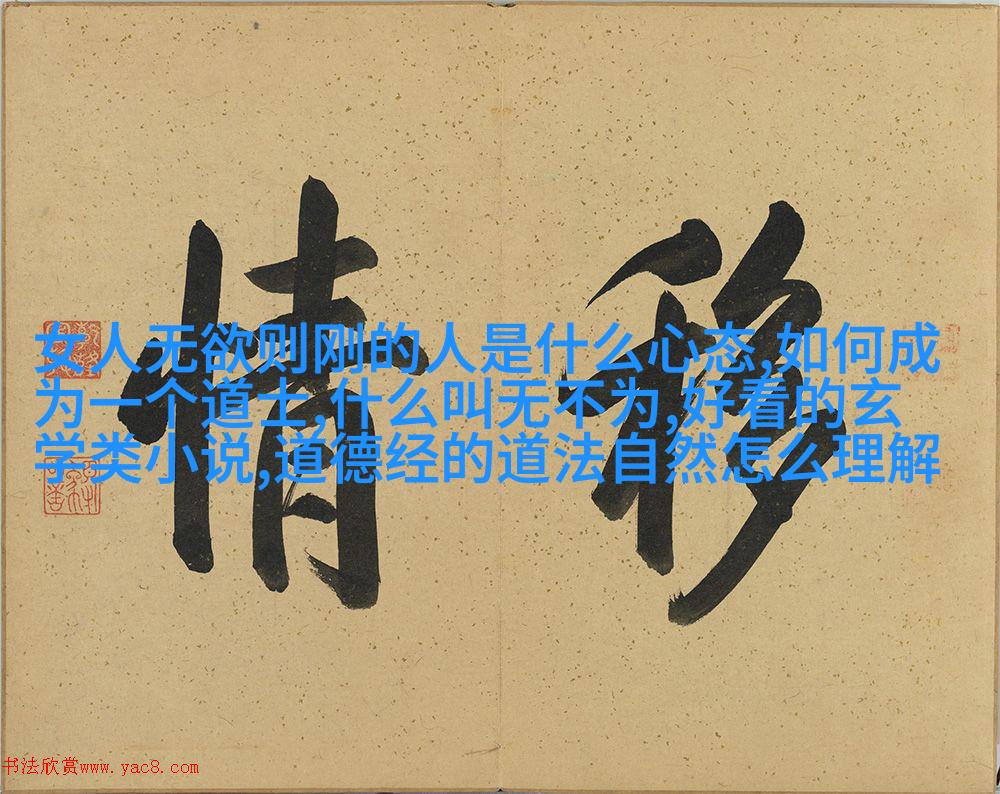 移情
女人无欲则刚的人是什么心态,如何成
为一个道士,什么叫无不为,好看的玄
学类小说,道德经的道法自然怎么理解
书法欣赏www.yac8.com